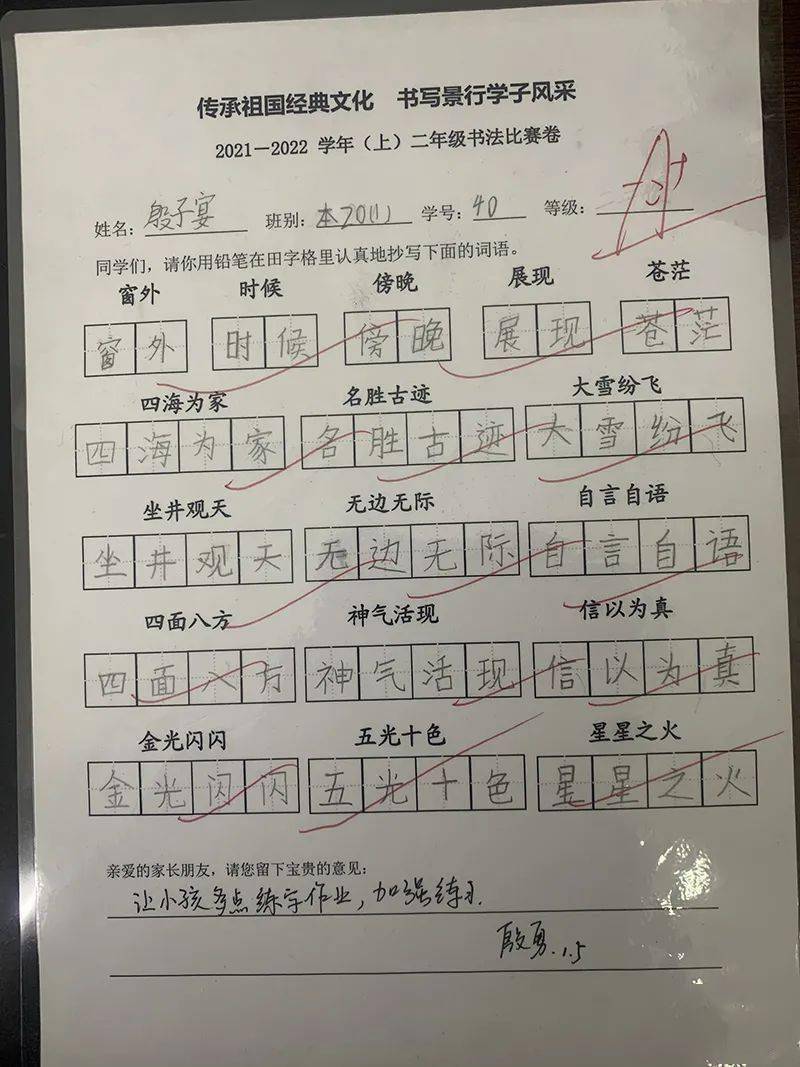 传承祖国经典文化 书写景行学子风采
2021—2022 学年（上）二年级书法比赛卷
姓名：殷子宴 班别：本20(1) 学号：40 等级：A+
同学们，请你用铅笔在田字格里认真地抄写下面的词语。
窗外 时候 傍晚 展现 苍茫
窗外 时候 傍晚 展现 苍茫
四海为家 名胜古迹 大雪纷飞
四海为家 名胜古迹 大雪纷飞
坐井观天 无边无际 自言自语
坐井观天 无边无际 自言自语
四面八方 神气活现 信以为真
四面八方 神气活现 信以为真
金光闪闪 五光十色 星星之火
金光闪闪 五光十色 星星之火
亲爱的家长朋友，请您留下宝贵的意见：
让小孩多点练字作业，加强练习.
殷勇.1.5